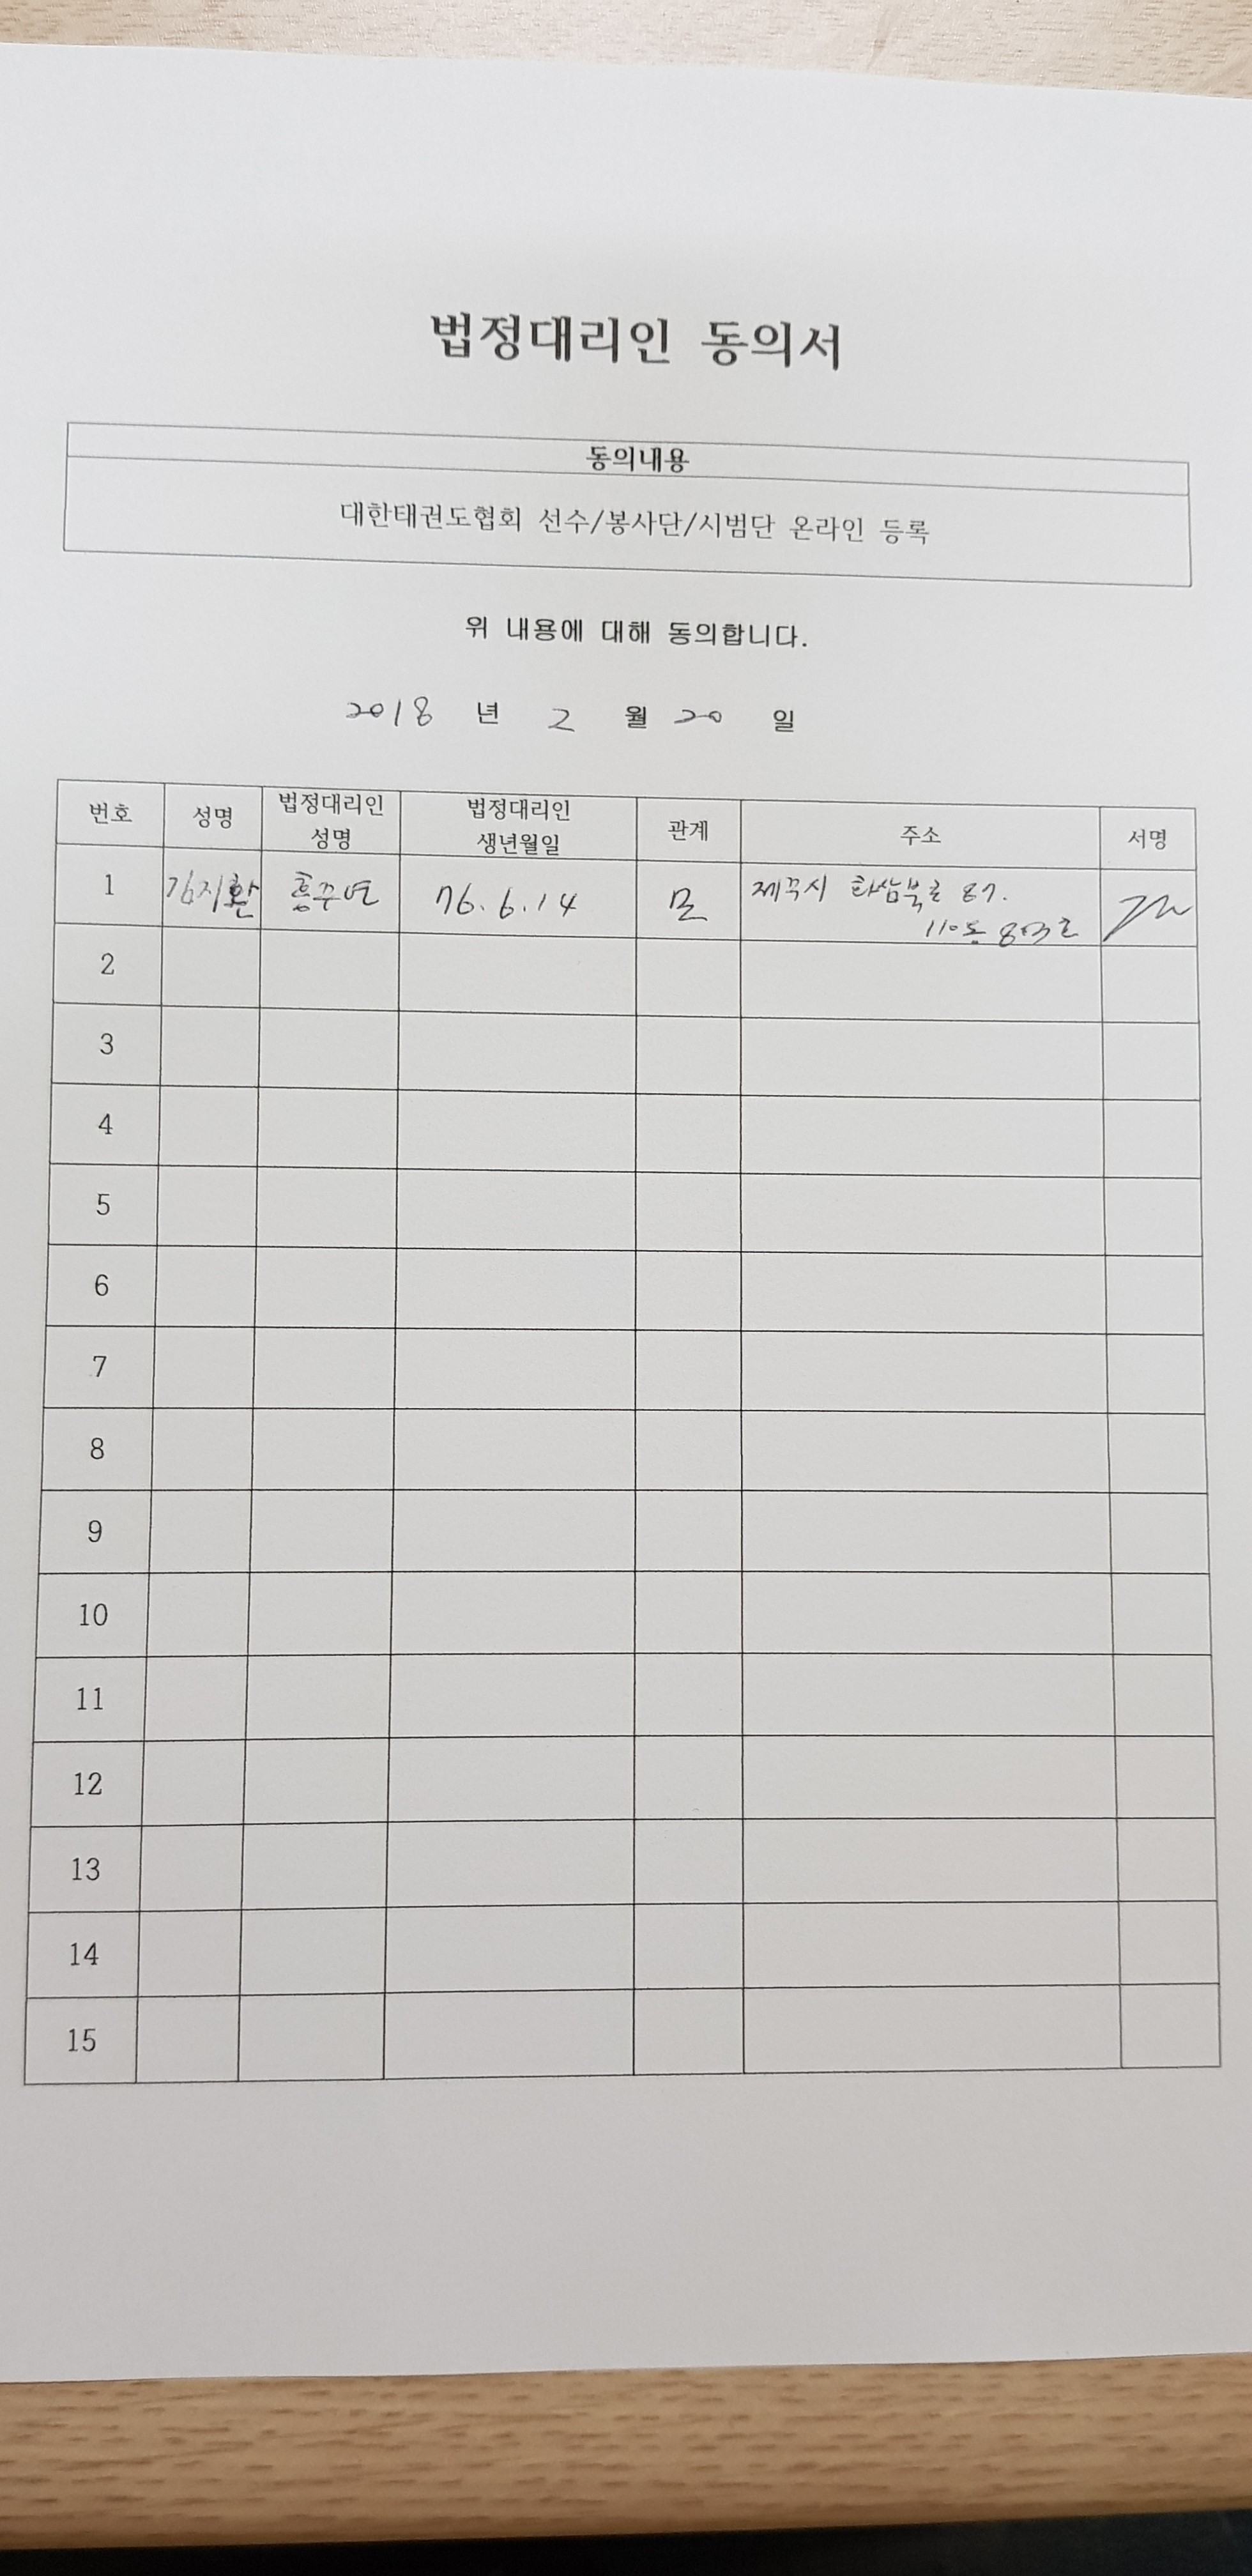 법정대리인 동의서
동의내용
대한태권도협회 선수/봉사단/시범단 온라인 등록
위 내용에 대해 동의합니다.
2018 년 2 월 20 일
번호 성명 법정대리인 성명 법정대리인 생년월일 관계 주소 서명
1 김지환 홍주연 76.6.14 모 제주시 화삼북로 87.
110동 803호
2
3
4
5
6
7
8
9
10
11
12
13
14
15